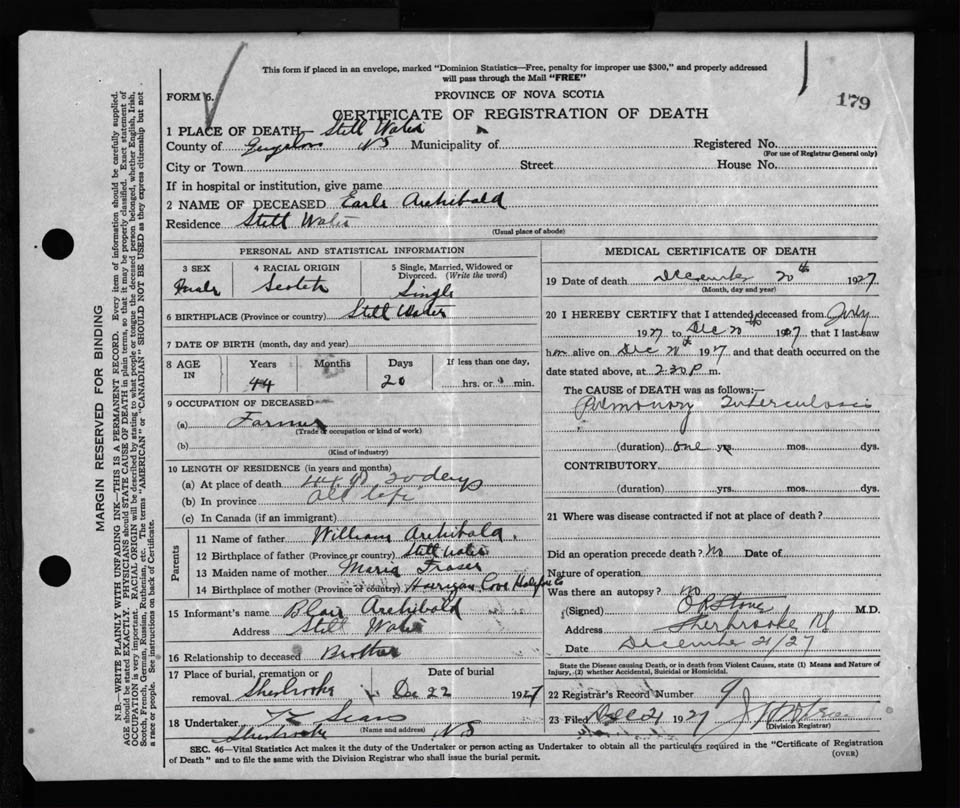 This form if placed in an envelope, marked "Dominion Statistics—Free, penalty for improper use $300," and properly addressed
will pass through the Mail "FREE"
FORM 6.
PROVINCE OF NOVA SCOTIA
179
CERTIFICATE OF REGISTRATION OF DEATH
1 PLACE OF DEATH— Still Water
County of NS Municipality of Registered No.
(For use of Registrar General only)
City or Town Street House No.
If in hospital or institution, give name
2 NAME OF DECEASED Earle Archibald
Residence Still Water
(Usual place of abode)
PERSONAL AND STATISTICAL INFORMATION
3 SEX
Male
4 RACIAL ORIGIN
Scotch
5 Single, Married, Widowed or
Divorced. (Write the word)
Single
6 BIRTHPLACE (Province or country) Still Water
7 DATE OF BIRTH (month, day and year)
8 AGE
IN
Years Months Days If less than one day,
44 20 hrs. or min.
9 OCCUPATION OF DECEASED
(a) Farmer
(Trade or occupation or kind of work)
(b)
(Kind of industry)
10 LENGTH OF RESIDENCE (in years and months)
(a) At place of death 44 yr 20 days
(b) In province all life
(c) In Canada (if an immigrant)
Parents
11 Name of father William Archibald.
12 Birthplace of father (Province or country) Still Water
13 Maiden name of mother Maria Fraser
14 Birthplace of mother (Province or country) Harrigan Cove Halifax Co
15 Informant's name Blair Archibald
Address Still Water
16 Relationship to deceased Brother
17 Place of burial, cremation or Date of burial
removal Sherbrooke Dec 22 1927
18 Undertaker Sears
(Name and address)
Sherbrooke NS
MEDICAL CERTIFICATE OF DEATH
19 Date of death December 20th 1927
(Month, day and year)
20 I HEREBY CERTIFY that I attended deceased from July
1927 to Dec 20th 1927 that I last saw
him alive on Dec 20th 1927 and that death occurred on the
date stated above, at 2.30 P m.
The CAUSE of DEATH was as follows:—
Pulmonary Tuberculosis
(duration) one yrs. mos. dys.
CONTRIBUTORY
(duration) yrs. mos. dys.
21 Where was disease contracted if not at place of death?
Did an operation precede death? No Date of
Nature of operation
Was there an autopsy? no
(Signed) M.D.
Address Sherbrooke NS
Date December 21/27
State the Disease causing Death, or in death from Violent Causes, state (1) Means and Nature of
Injury, (2) whether Accidental, Suicidal or Homicidal.
22 Registrar's Record Number 9
23 Filed Dec 21 1927
(Division Registrar)
SEC. 46—Vital Statistics Act makes it the duty of the Undertaker or person acting as Undertaker to obtain all the particulars required in the "Certificate of Registration
of Death" and to file the same with the Division Registrar who shall issue the burial permit.
(OVER)
MARGIN RESERVED FOR BINDING
N.B.—WRITE PLAINLY WITH UNFADING INK—THIS IS A PERMANENT RECORD. Every item of information should be carefully supplied.
AGE should be stated EXACTLY. PHYSICIANS should STATE CAUSE OF DEATH in plain terms, so that it may be properly classified. Exact statement of
OCCUPATION is very important. RACIAL ORIGIN will be described by stating to what people or tongue the deceased person belonged, whether English, Irish,
Scotch, French, German, Russian, Ruthenian, etc. The terms "AMERICAN" or "CANADIAN" SHOULD NOT BE USED as they express citizenship but not
a race or people. See instructions on back of Certificate.